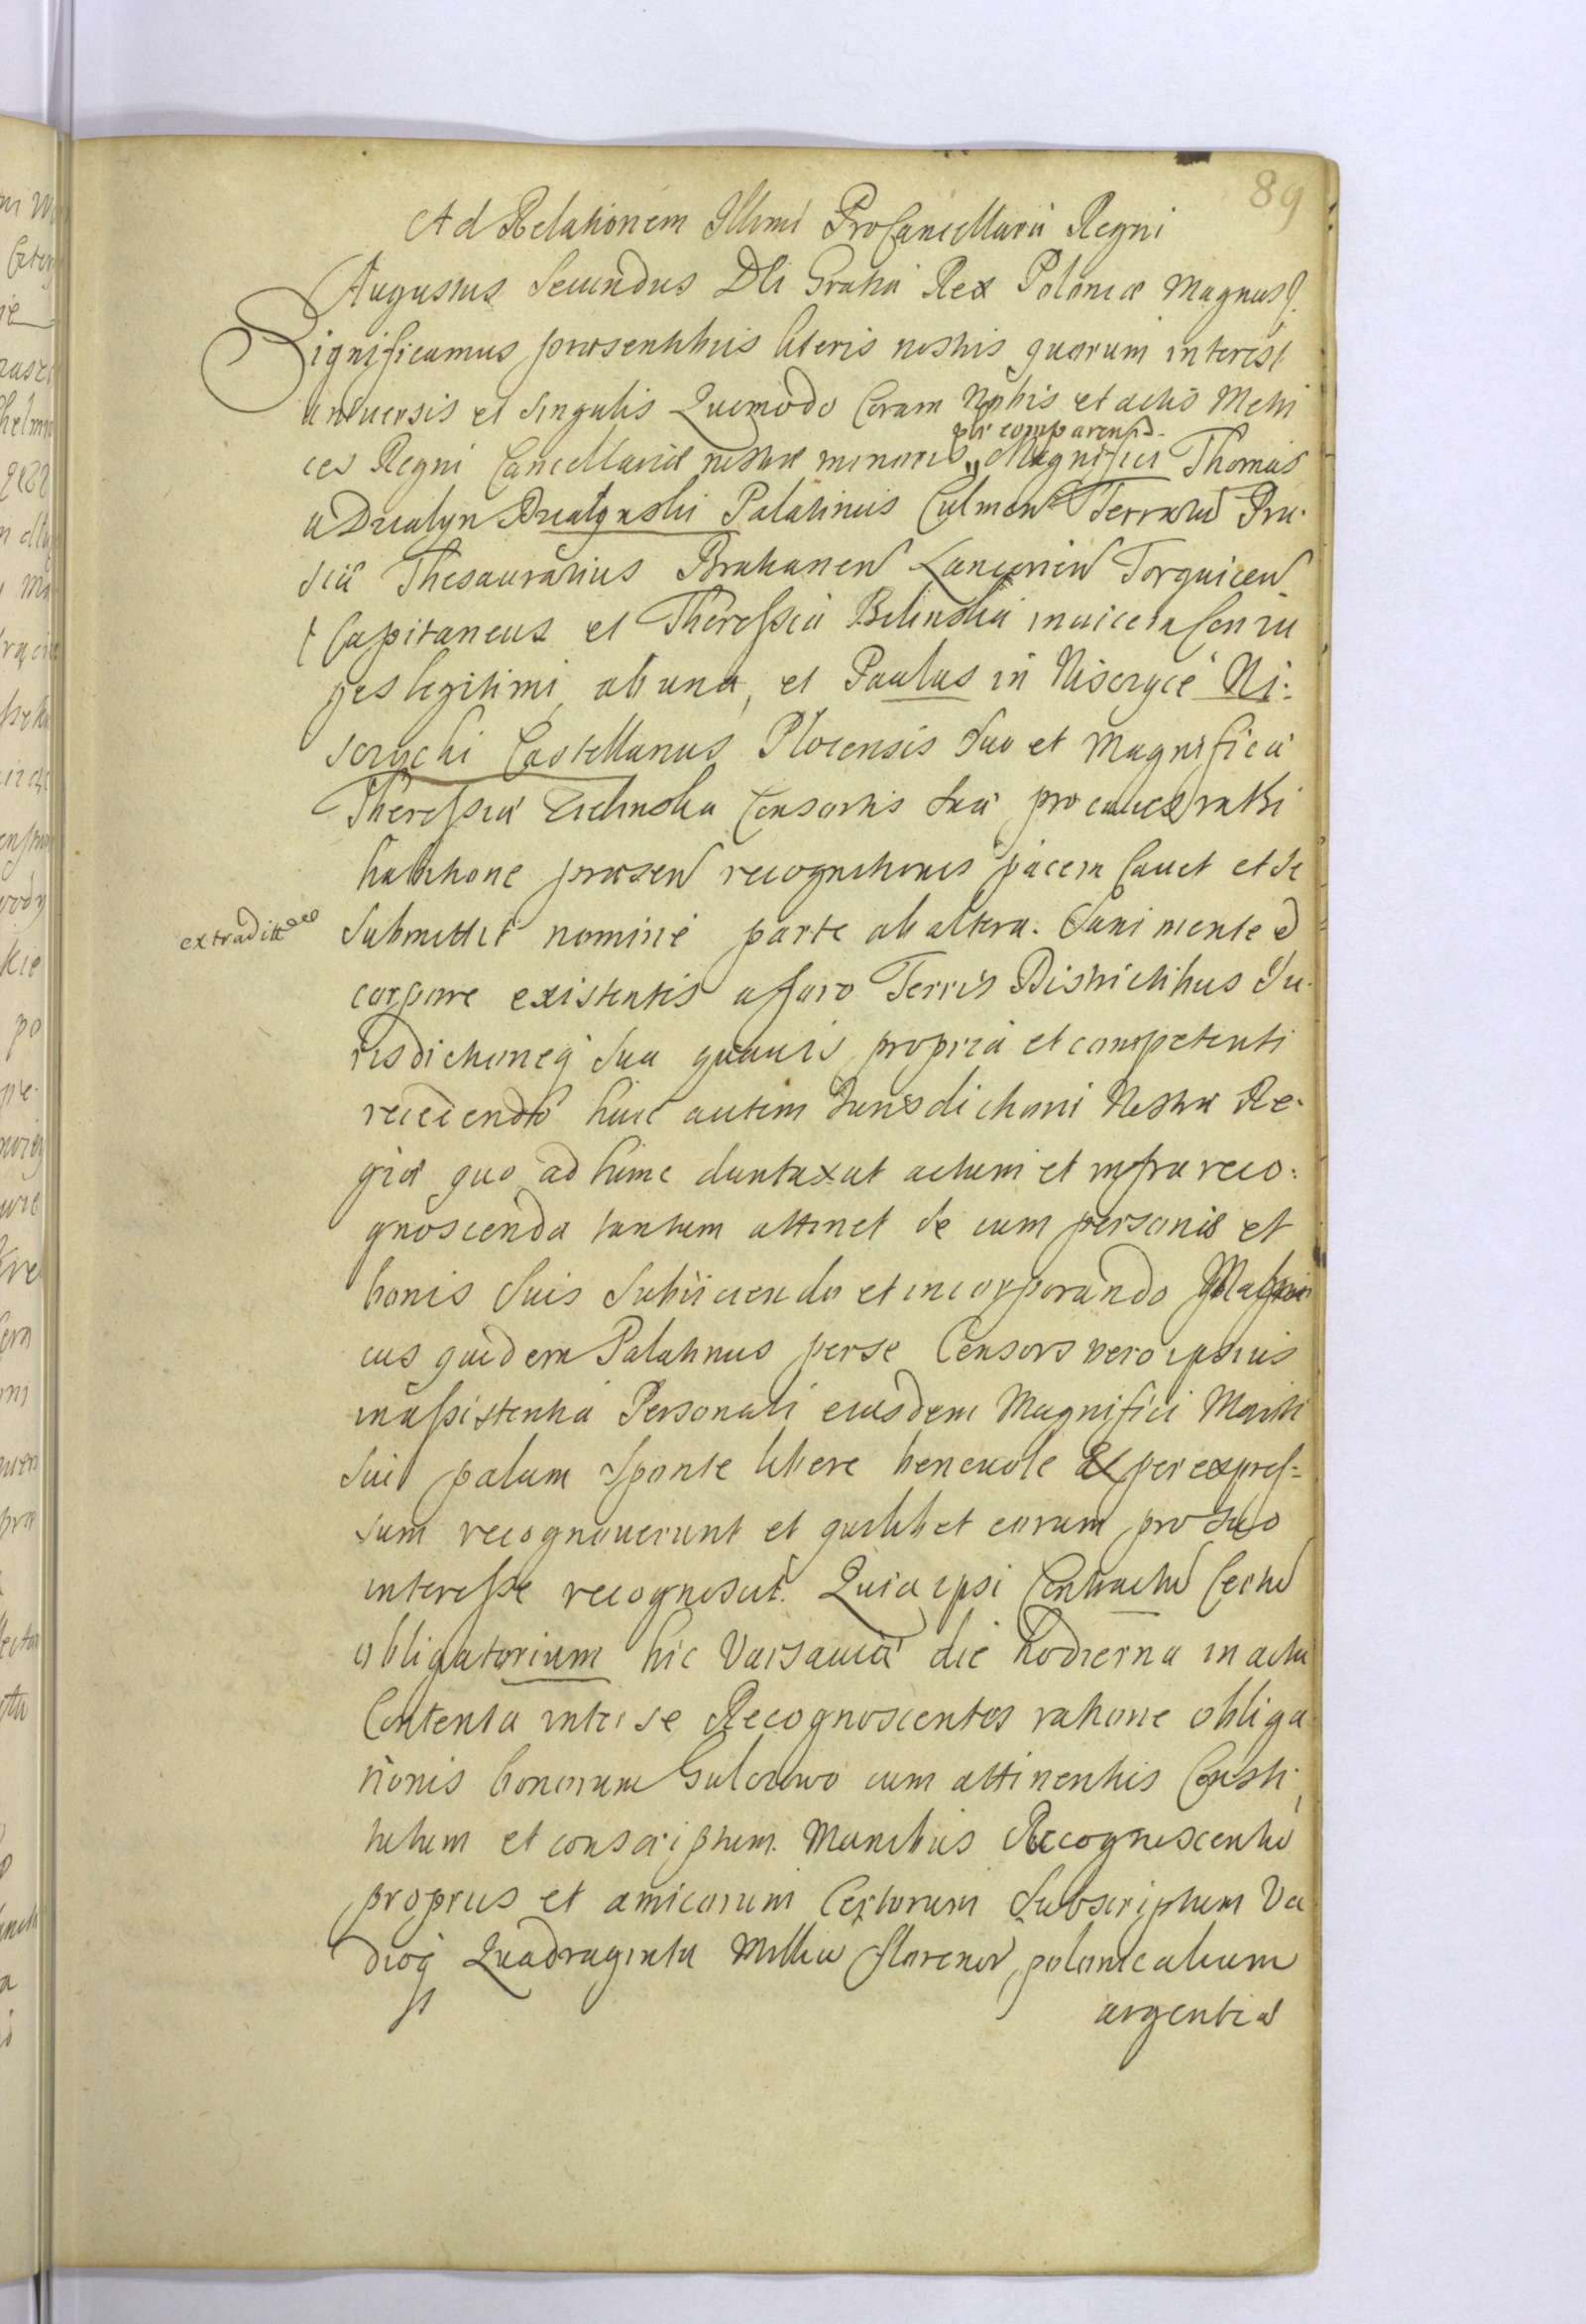 89
Ad Relationem Illmi ProCancellarii Regni
Augustus Secundus Dei Gratia Rex Poloniæ Magnus
Significamus præsentibus literis nostris quorum interest
universis et singulis Quomodo Coram Nobis et actis Metri
plr comparend.
ces Regni Cancellariæ nostræ minoris „ Magnifici Thomas
a Dzialyn Dzialynski Palatinus Culmen Terraru Pru.
siæ Thesaurarius Bratianen Lancorien
Capitaneus et Theressia Bilinska invicem Coniu
ges legitimi ab una, et Paulus in Niszczyce Ni:
szczycki Castellanus Plocensis suo et Magnificæ
Theressiæ Zielinska Consortis suæ pro cuius rati
habitione præsen recognitionis pacem Cavet et se
extraditæ
submittit nomine parte ab altera. Sani mente et
corpore existentis a foro Terris Districtibus Iu.
risdictioneq sua quavis propria et competenti
recedendo huic autem Iurisdictioni Nostræ Re.
giæ quo ad hunc duntaxat actum et infra reco:
gnoscenda tantum attinet se cum personis et
bonis suis subiiciendo et incorporando Magnifi
cus quidem Palatinus per se Consors vero ipsius
in assistentia Personali eiusdem Magnifici Mariti
sui palam sponte libere benevole et per expres=
sum recognoverunt et quilibet eorum pro suo
interesse recognoscit. Quia ipsi Contractu Certu
obligatorium hic Varsaviæ die hodierna in actu
Contenta inter se Recognoscentes ratione obliga
tionis bonorum Gulczewo cum attinentiis Consti,
tutum et conscriptum. Manibus Recognoscentiu
propriis et amicorum Certorum Subscriptum Va
dioq Quadraginta Millia florenor polonicalium
argentea